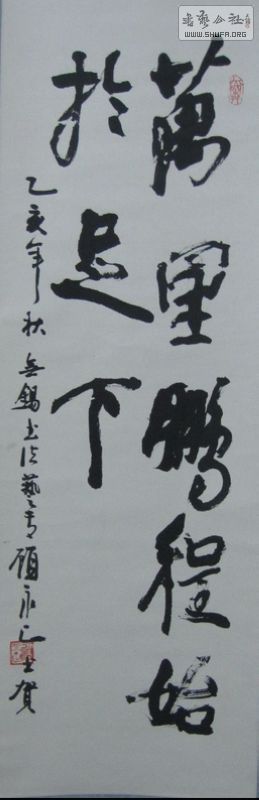 萬里鵬程始
於足下
乙亥年秋無錫书法藝专顧永
賀
书艺公社
WWW.SHUFA.ORG